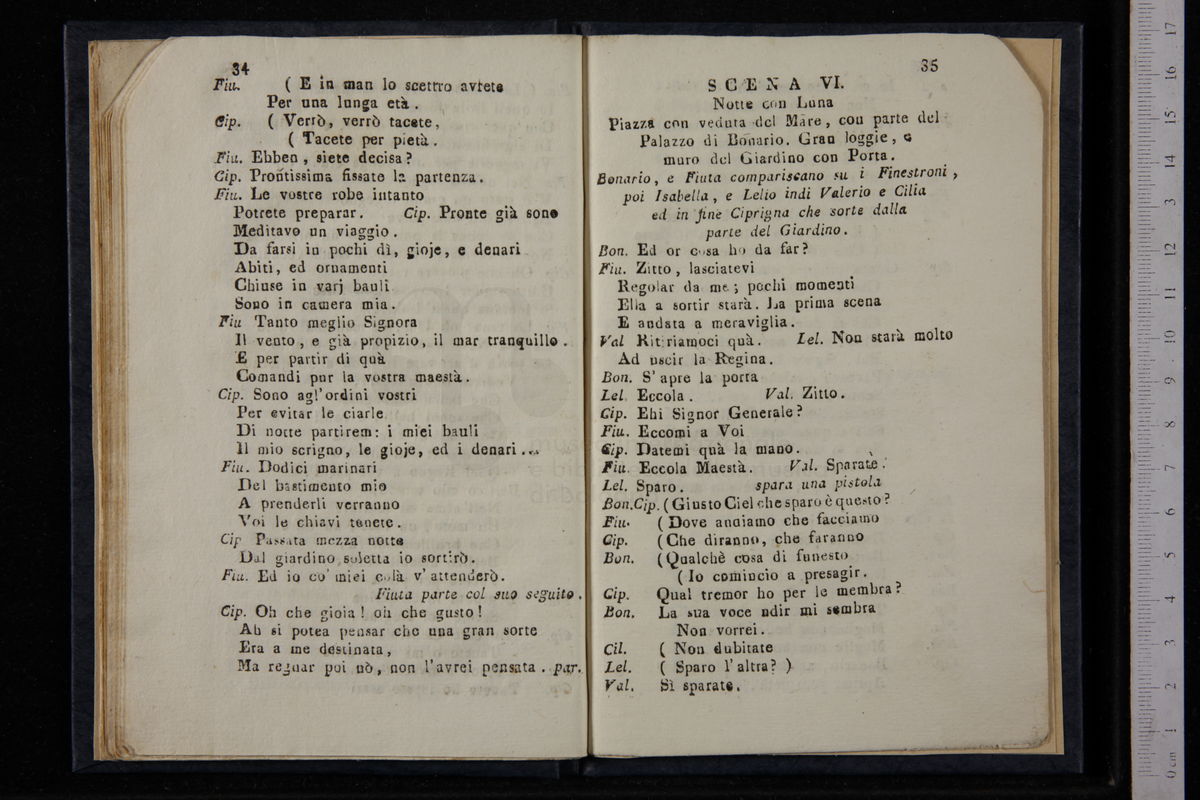 34
Fiu. ( E in man lo scettro avrete
Per una lunga età .
Cip. ( Verrò, verrò tacete,
( Tacete per pietà .
Fiu. Ebben , siete decisa?
Cip. Prontissima fissate la partenza.
Fiu. Le vostre robe intanto
Potrete preparar. Cip. Pronte già sono
Meditavo un viaggio .
Da farsi in pochi dì, gioje, e denari
Abiti, ed ornamenti
Chiuse in varj bauli
Sono in camera mia .
Fiu Tanto meglio Signora
Il vento , e già propizio, il mar tranquillo .
E per partir di quà
Comandi pur la vostra maestà.
Cip. Sono agl'ordini vostri
Per evitar le ciarle
Di notte partirem: i miei bauli
Il mio scrigno, le gioje, ed i denari ...
Fiu. Dodici marinari
Del bastimento mio
A prenderli verranno
Voi le chiavi tenete .
Cip Passata mezza notte
Dal giardino soletta io sortirò.
Fiu. Ed io co' miei colà v' attenderò.
Fiuta parte col suo seguito .
Cip. Oh che gioia ! oh che gusto !
Ah si potea pensar che una gran sorte
Era a me destinata ,
Ma regnar poi nò, non l'avrei pensata . par.
35
SCENA VI.
Notte con Luna
Piazza con veduta del Mare, con parte del
Palazzo di Bonario. Gran loggie , e
muro del Giardino con Porta .
Bonario , e Fiuta compariscano su i Finestroni ,
poi Isabella , e Lelio indi Valerio e Cilia
ed in fine Ciprigna che sorte dalla
parte del Giardino .
Bon. Ed or cosa ho da far?
Fiu. Zitto , lasciatevi
Regolar da me ; pochi momenti
Ella a sortir starà. La prima scena
E andata a meraviglia .
Val Ritiriamoci quà. Lel. Non starà molto
Ad uscir la Regina.
Bon. S' apre la porta
Lel. Eccola . Val. Zitto .
Cip. Ehi Signor Generale?
Fiu. Eccomi a Voi
Cip. Datemi quà la mano.
Fiu. Eccola Maestà. Val. Sparate .
Lel. Sparo . spara una pistola
Bon.Cip. (Giusto Ciel che sparo è questo ?
Fiu. ( Dove andiamo che facciamo
Cip. (Che diranno, che faranno
Bon. (Qualchè cosa di funesto
( Io comincio a presagir.
Cip. Qual tremor ho per le membra ?
Bon. La sua voce udir mi sembra
Non vorrei .
Cil. ( Non dubitate
Lel. ( Sparo l'altra? )
Val. Sì sparate.
0 cm 1 2 3 4 5 6 7 8 9 10 11 12 13 14 15 16 17